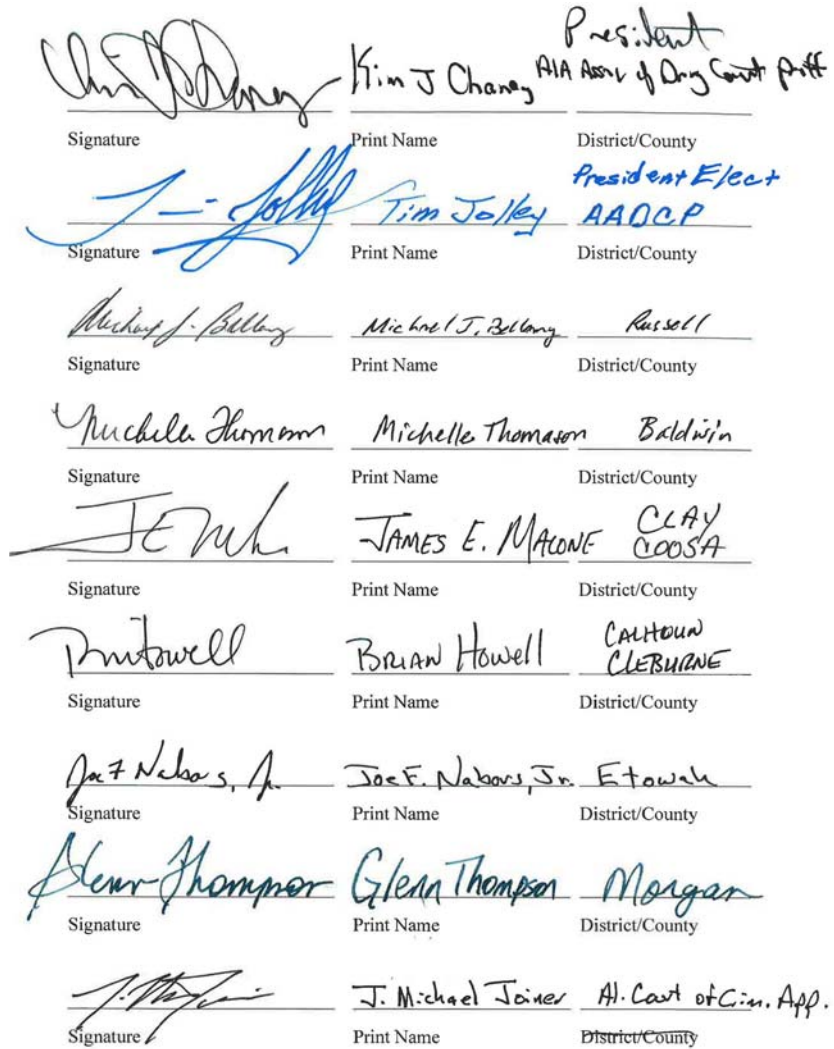 President
Kim J Chaney AlA Assn of Drug Court Proff
Signature Print Name District/County
President Elect
Tim Jolley Tim Jolley AADCP
Signature Print Name District/County
Michael J. Bellamy Michael J. Bellamy Russell
Signature Print Name District/County
Michelle Thomason Michelle Thomason Baldwin
Signature Print Name District/County
CLAY
JAMES E. MALONE COOSA
Signature Print Name District/County
CALHOUN
BRIAN Howell CLEBURNE
Signature Print Name District/County
Joe F Nabors, Jr. Joe F. Nabors, Jr. Etowah
Signature Print Name District/County
Glenn Thompson Glenn Thompson Morgan
Signature Print Name District/County
J. Michael Joiner Al. Court of Crim. App.
Signature Print Name District/County